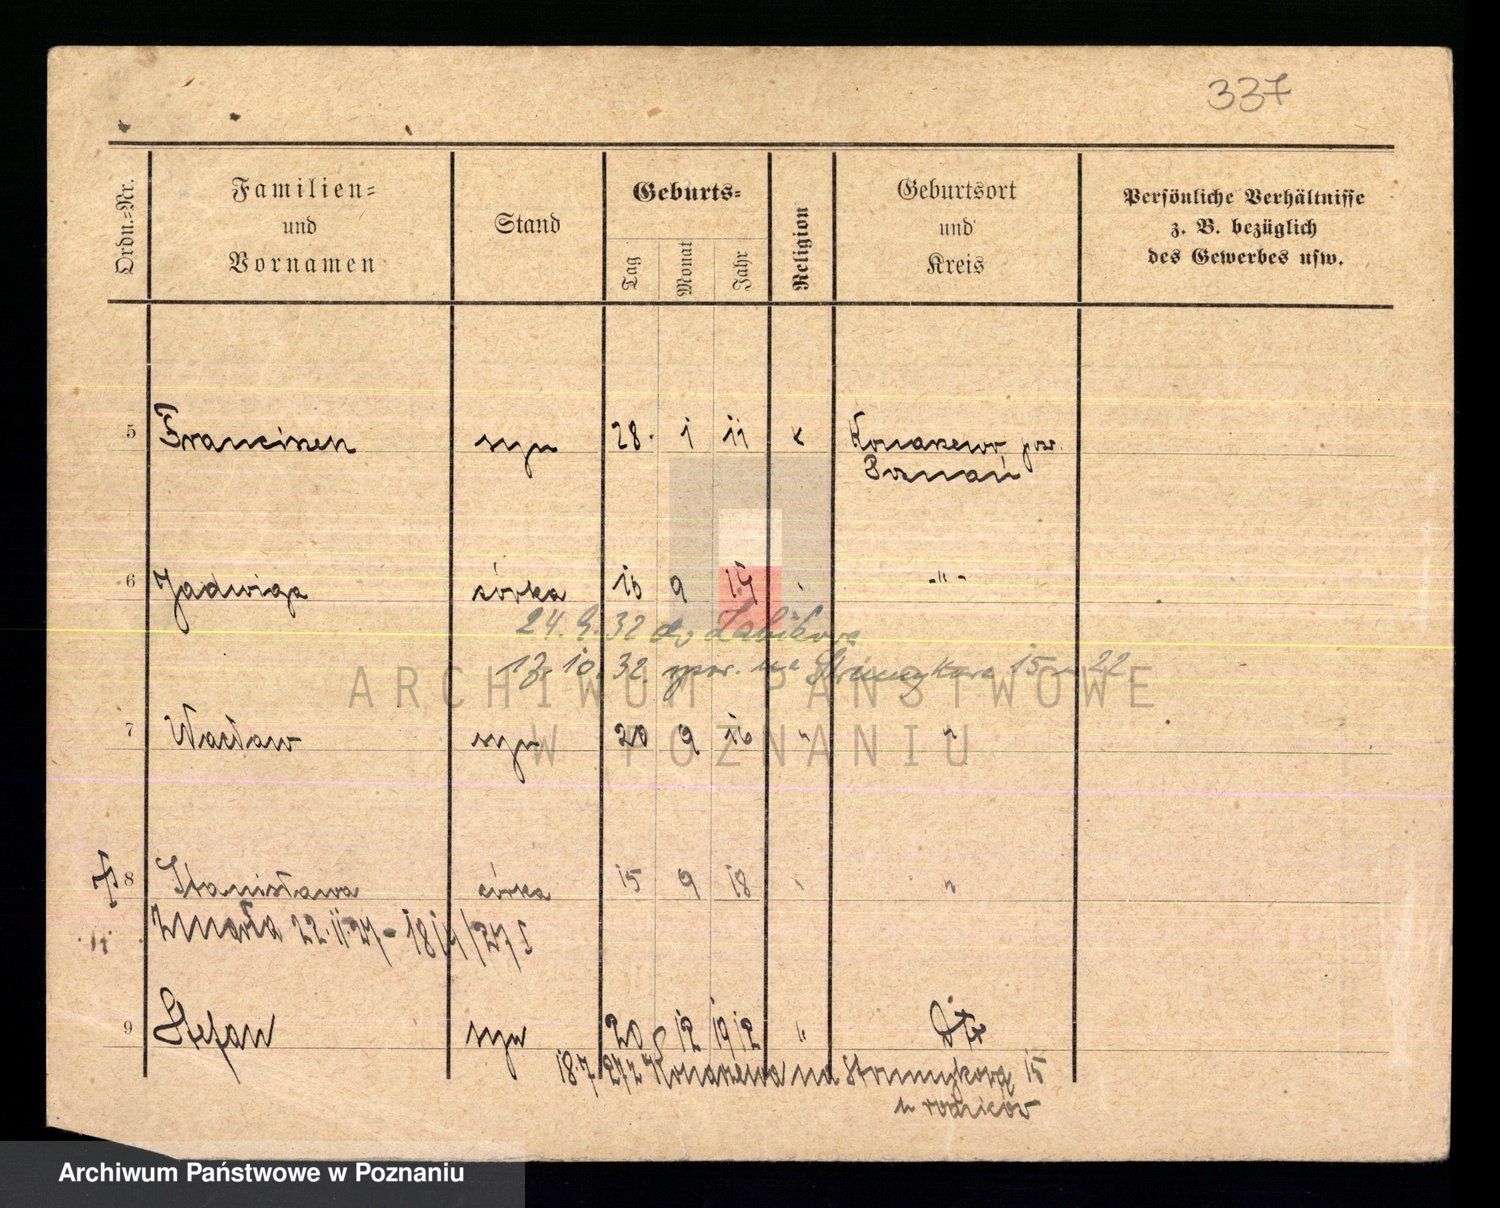 337
Ordn.=Nr.
Familien=
und
Vornamen
Stand
Geburts=
Tag
Monat
Jahr
Religion
Geburtsort
und
Kreis
Persönliche Verhältnisse
z. B. bezüglich
des Gewerbes usw.
5 Franciszek syn 28. 1 11 k Konarzewo, pow.
Poznań
6 Jadwiga córka 16 9 14 -"-
24. 9. 32 do Żabikowa
17. 10. 32. spow. na Strumykowa 15 22
7 Wacław syn 20 9 16 " "
8 Stanisława córka 15 9 18 "
Zmarła 22.11.27 -
9 Stefan syn 20 12 1912 " Dto
18.7.27 z Konarzewa na Strumykową 15
u rodziców
ARCHIWUM PAŃSTWOWE
W POZNANIU
Archiwum Państwowe w Poznaniu